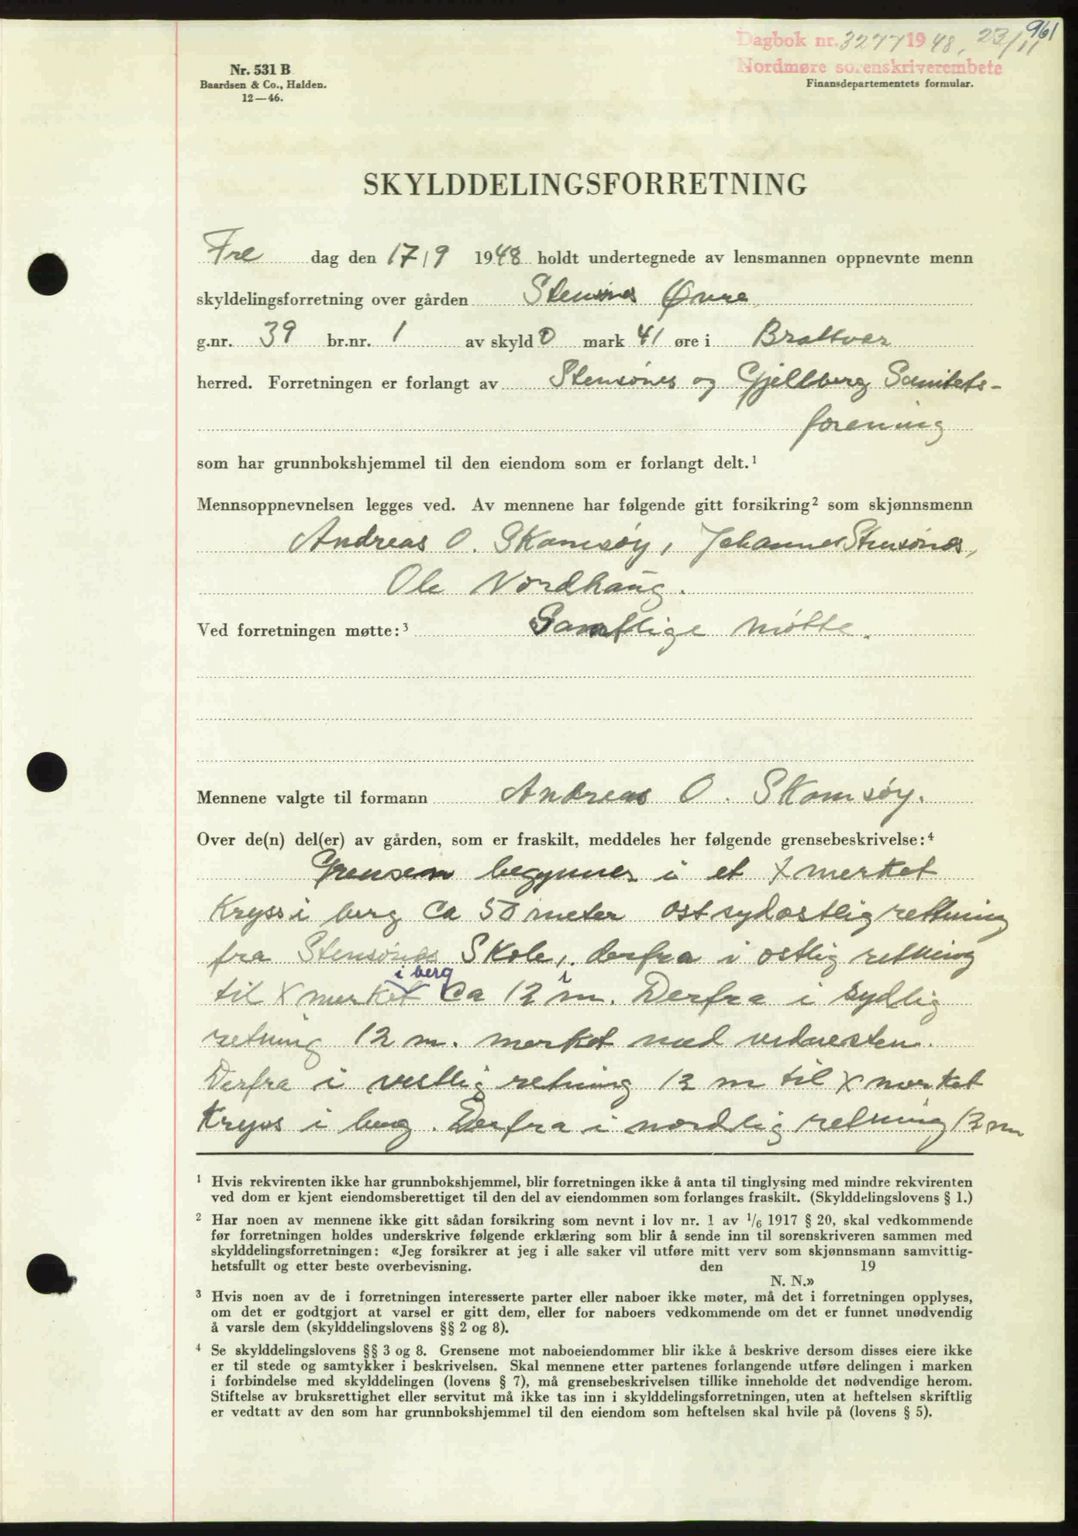 961
Dagbok nr. 3277 1948, 23/11
Nordmøre sorenskriverembete
Finansdepartementets formular.
Nr. 531 B
Baardsen & Co., Halden.
12—46.
SKYLDDELINGSFORRETNING
Fre dag den 17/9 1948 holdt undertegnede av lensmannen oppnevnte menn
skyldelingsforretning over gården Stensønes Øvre
g.nr. 39 br.nr. 1 av skyld 0 mark 41 øre i Brattvær
herred. Forretningen er forlangt av Stensønes og Gjellberg Sanitets-
forening
som har grunnbokshjemmel til den eiendom som er forlangt delt.¹
Mennsoppnevnelsen legges ved. Av mennene har følgende gitt forsikring² som skjønnsmenn
Andreas O. Skomsøy, Johannes Stensønes,
Ole Nordhaug.
Ved forretningen møtte:³ Samtlige møtte.
Mennene valgte til formann Andreas O. Skomsøy.
Over de(n) del(er) av gården, som er fraskilt, meddeles her følgende grensebeskrivelse:⁴
Grensen begynner i et X merket
Kryss i berg ca 50 meter ostsydostlig rettning
fra Stensønes Skole, derfra i ostlig retning
til X merket i berg ca 12 m. Derfra i sydlig
retning 12 m. merket med
Derfra i vestlig retning 12 m til X merket
Kryss i berg. Derfra i nordlig retning 12 m
¹ Hvis rekvirenten ikke har grunnbokshjemmel, blir forretningen ikke å anta til tinglysing med mindre rekvirenten
ved dom er kjent eiendomsberettiget til den del av eiendommen som forlanges fraskilt. (Skylddelingslovens § 1.)
² Har noen av mennene ikke gitt sådan forsikring som nevnt i lov nr. 1 av 1/6 1917 § 20, skal vedkommende
før forretningen holdes underskrive følgende erklæring som blir å sende inn til sorenskriveren sammen med
skylddelingsforretningen: «Jeg forsikrer at jeg i alle saker vil utføre mitt verv som skjønnsmann samvittig-
hetsfullt og etter beste overbevisning. den 19
N. N.»
³ Hvis noen av de i forretningen interesserte parter eller naboer ikke møter, må det i forretningen opplyses,
om det er godtgjort at varsel er gitt dem, eller for naboers vedkommende om det er funnet unødvendig
å varsle dem (skylddelingslovens §§ 2 og 8).
⁴ Se skylddelingslovens §§ 3 og 8. Grensene mot naboeiendommer blir ikke å beskrive dersom disses eiere ikke
er til stede og samtykker i beskrivelsen. Skal mennene etter partenes forlangende utføre delingen i marken
i forbindelse med skylddelingen (lovens § 7), må grensebeskrivelsen tillike inneholde det nødvendige herom.
Stiftelse av bruksrettighet eller servitut må ikke tas inn i skylddelingsforretningen, uten at heftelsen skriftlig
er vedtatt av den som har grunnbokshjemmel til den eiendom som heftelsen skal hvile på (lovens § 5).